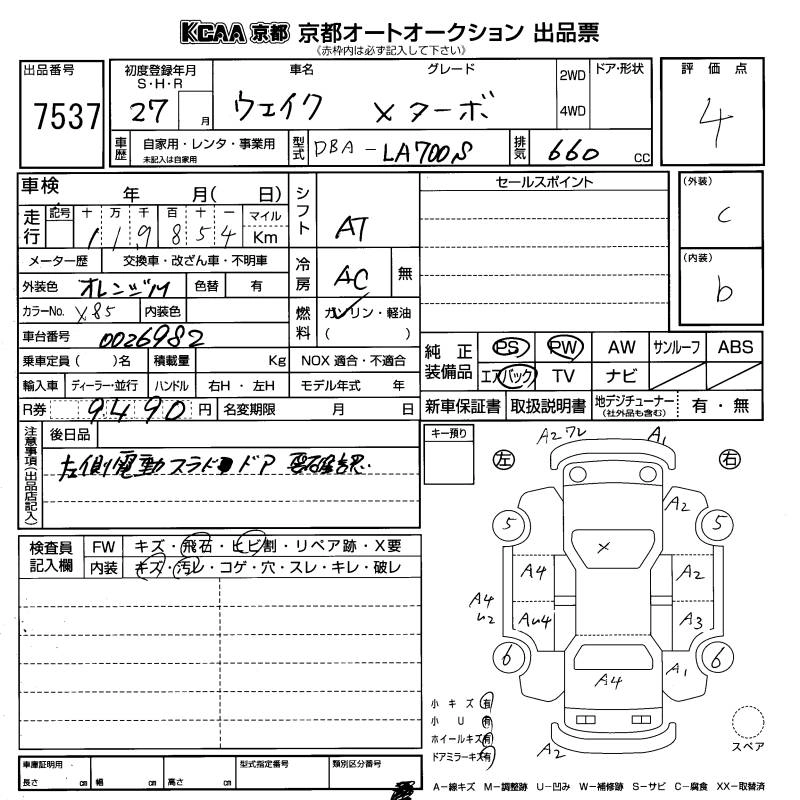 KCAA 京都 京都オートオークション 出品票
《赤枠内は必ず記入して下さい》
出品番号 7537
初度登録年月 S・H・R 27 月
車名 ウェイク
グレード Xターボ
2WD 4WD
ドア・形状
評価点 4
車歴 自家用・レンタ・事業用 未記入は自家用
型式 DBA-LA700S
排気 660 CC
車検 年 月( 日)
シフト AT
セールスポイント
(外装) c
(内装) b
走行 記号 十 万 千 百 十 一 マイル Km
119854
メーター歴 交換車・改ざん車・不明車
冷房 AC 無
外装色 オレンジM 色替 有
カラーNo. X85 内装色
燃料 ガソリン・軽油 ( )
車台番号 0026982
乗車定員( )名 積載量 Kg NOX 適合・不適合
輸入車 ディーラー・並行 ハンドル 右H・左H モデル年式 年
R券 9490 円 名変期限 月 日
純正装備品 PS PW AW サンルーフ ABS
エアバック TV ナビ
新車保証書 取扱説明書 地デジチューナー (社外品も含む) 有・無
注意事項(出品店記入)
後日品
左側電動スラドドア
キー預り
検査員記入欄 FW キズ・飛石・ヒビ割・リペア跡・X要
内装 キズ・汚レ・コゲ・穴・スレ・キレ・破レ
左 右
A2 ワレ A1
A2
5 5
X
A4 A2
A4 U2
AU4 A3
6 6
A4 A1
A2
小キズ 有
小U 有
ホイールキズ 有
ドアミラーキズ 有
スペア
車庫証明用 長さ cm 幅 cm 高さ cm
型式指定番号
類別区分番号
A-線キズ M-調整跡 U-凹み W-補修跡 S-サビ C-腐食 XX-取替済